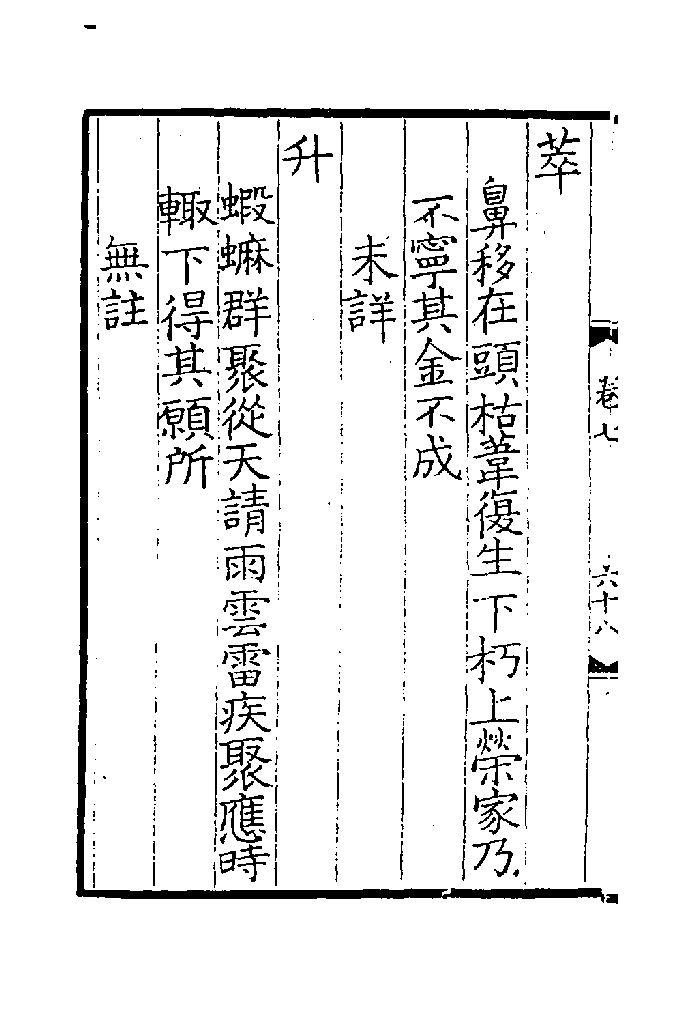 卷七
六十八
萃
鼻移在頭枯葦復生下朽上榮家乃
不寧其金不成
未詳
升
蝦蟆群聚從天請雨雲雷疾聚應時
輙下得其願所
無註